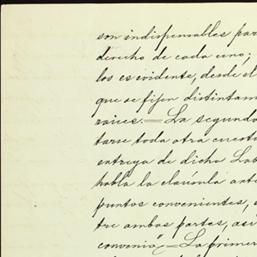 son indispensables par
derecho de cada uno;
los es evidente, desde el
que se fijen distintam
raices.—La segunda
tarse toda otra cuesti
entrega de dicho Lab
habla la claúsula ante
puntos convenientes, e
tre ambas partes, así
convenio.—La primer